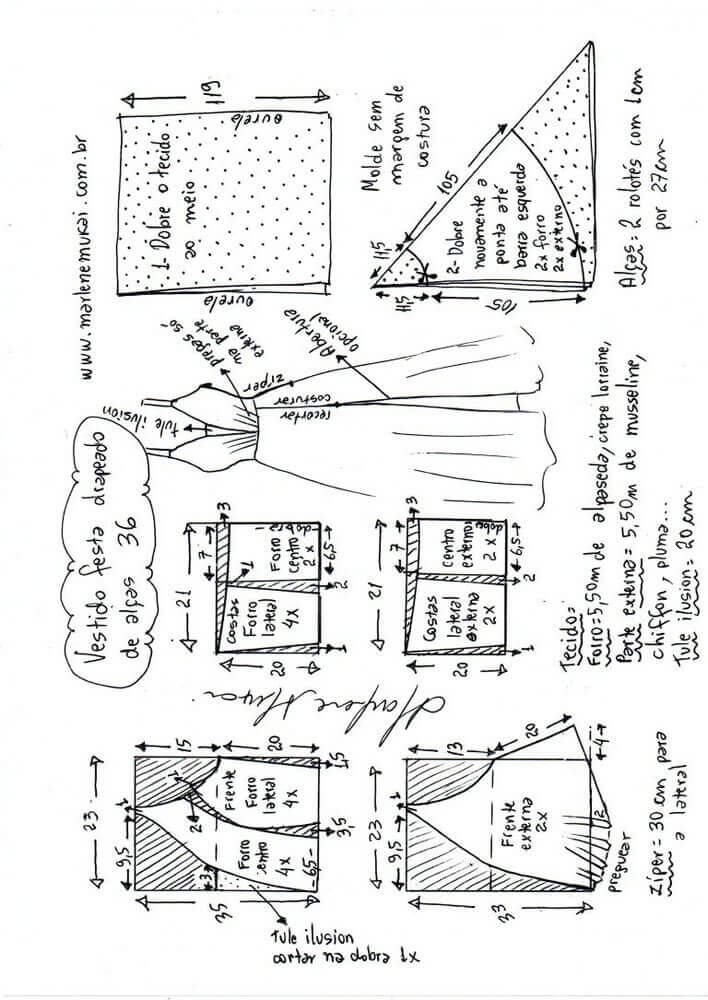 Vestido festa drapeado
de alças 36
www.marlenemukai.com.br
119
ourela
1- Dobre o tecido
ao meio
ourela
Molde sem
margem de
costura
11,5
105
2- Dobre
novamente a
ponta até
barra esquerda
2x forro
2x externo
11,5
105
Alças: 2 rolotés com 1cm
por 27cm
tule ilusion
pregas 50°
na parte
externa
ziper
Abertura
opcional
recortar
costurar
21
7
3
1
Costas
Forro
lateral
4x
Forro
centro
2x
dobra
20
1
2
6,5
21
7
3
Costas
lateral
externa
2x
centro
externo
2x
dobra
20
1
2
6,5
Marlene Mukai
Tecido=
Forro=5,50m de alpaseda, crepe lorraine,
Parte externa= 5,50m de musseline,
chiffon, pluma...
Tule ilusion= 20cm
23
9,5
1
15
20
1
2
Frente
Forro
lateral
4x
Forro
centro
4x
3
35
6,5
3,5
1,5
Tule ilusion
cortar na dobra 1x
23
9,5
1
13
20
4
Frente
externa
2x
33
2
preguear
Ziper=30cm para
a lateral